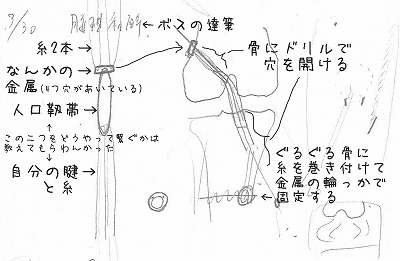 3/30
←ボスの達筆
糸2本→
なんかの→
金属(4つ穴があいている)
人口靱帯→
↑
この二つをどうやって繋ぐかは
教えてもらわんかった
↓
自分の腱→
と糸
骨にドリルで
穴を開ける
ぐるぐる骨に
糸を巻き付けて
金属の輪っかで
固定する